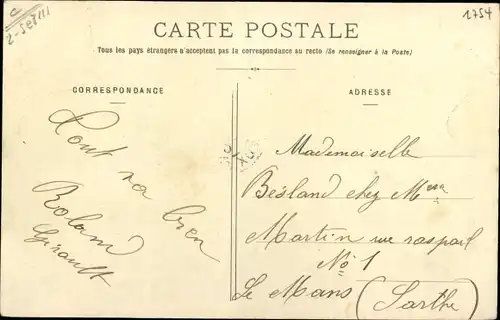 1754
CARTE POSTALE
Tous les pays étrangers n'acceptent pas la correspondance au recto (Se renseigner à la Poste)
CORRESPONDANCE
ADRESSE
Tout va bien
Roland
Girault
Mademoiselle
Besland chez Mme
Martin rue raspail
No 1
Le Mans (Sarthe)